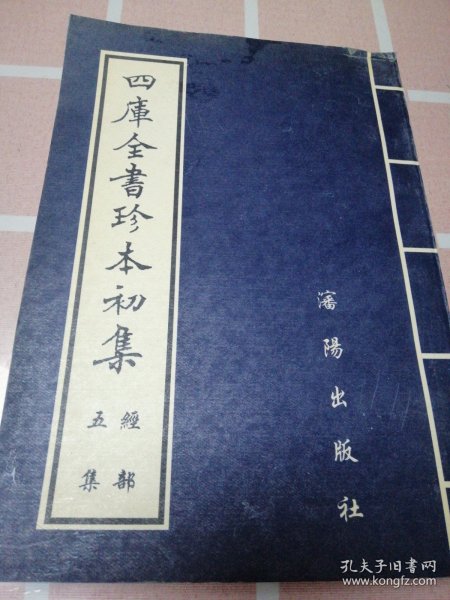 四庫全書珍本初集
經部
五集
瀋陽出版社
孔夫子旧书网
www.kongfz.com